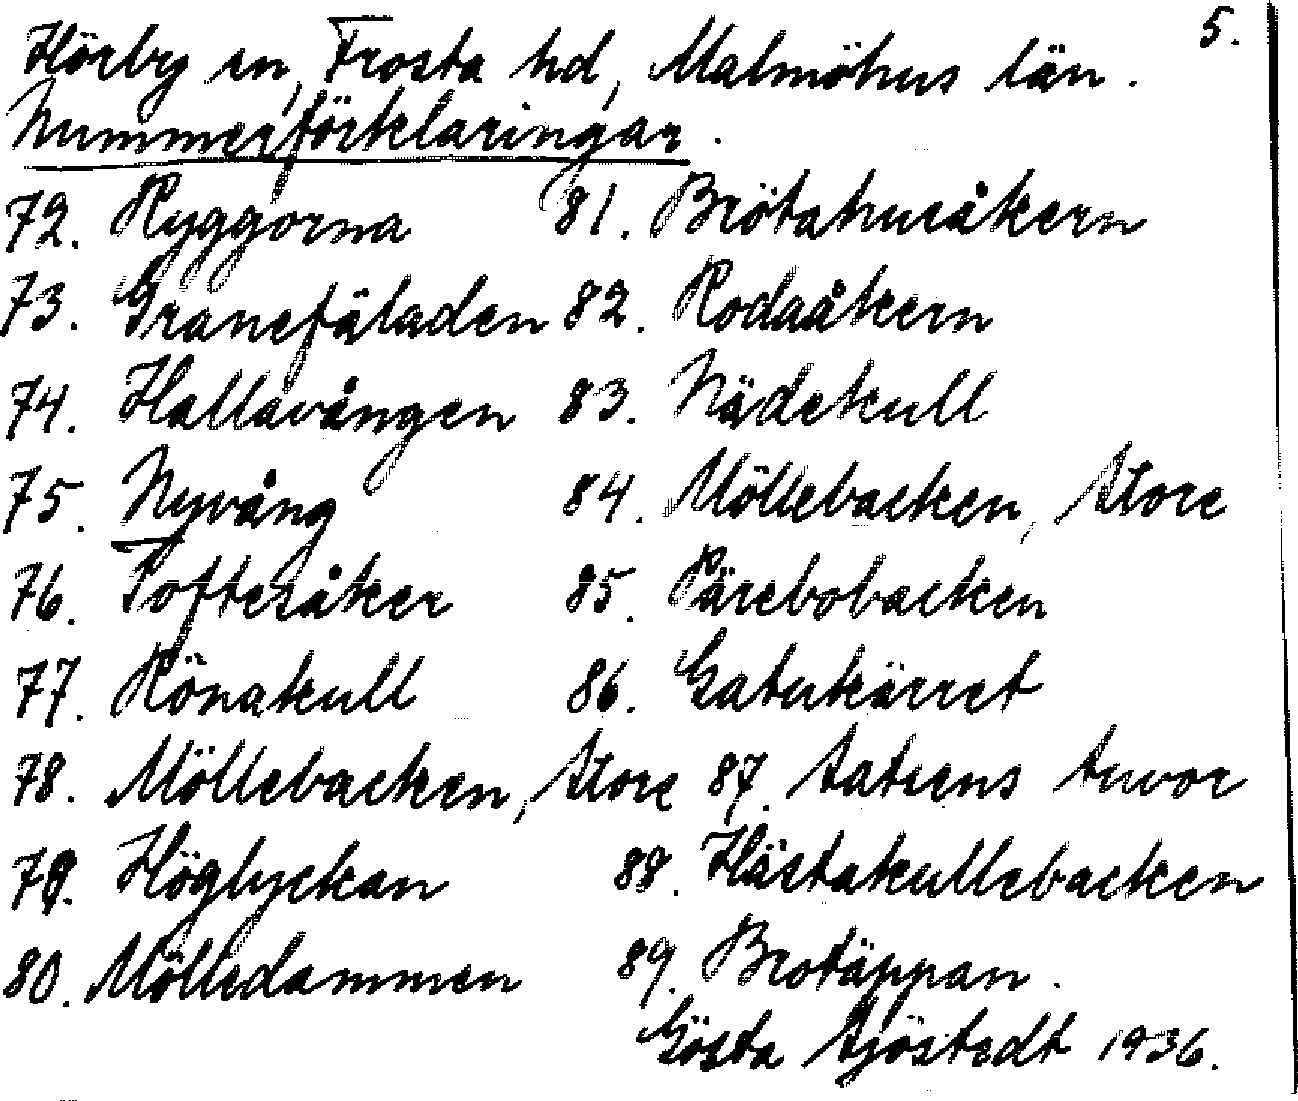 5.
Hörby sn, Frosta hd, Malmöhus län.
Nummerförklaringar.
72. Ryggorna 81. Brötahusåkern
73. Granefäladen 82. Rodaåkern
74. Hallavången 83. Nädekull
75. Nyvång 84. Möllebacken, Store
76. Toftesåker 85. Pärebobacken
77. Rönakull 86. Gatukärret
78. Möllebacken, Store 87. tuvor
79. Höglyckan 88. Hästakullebacken
80. Mölledammen 89. Brotäppan.
Gösta Sjöstedt 1936.